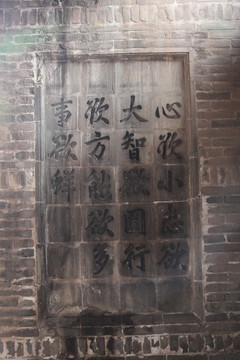 心欲小志欲
大智欲圓行
欲方能欲多
事欲鮮